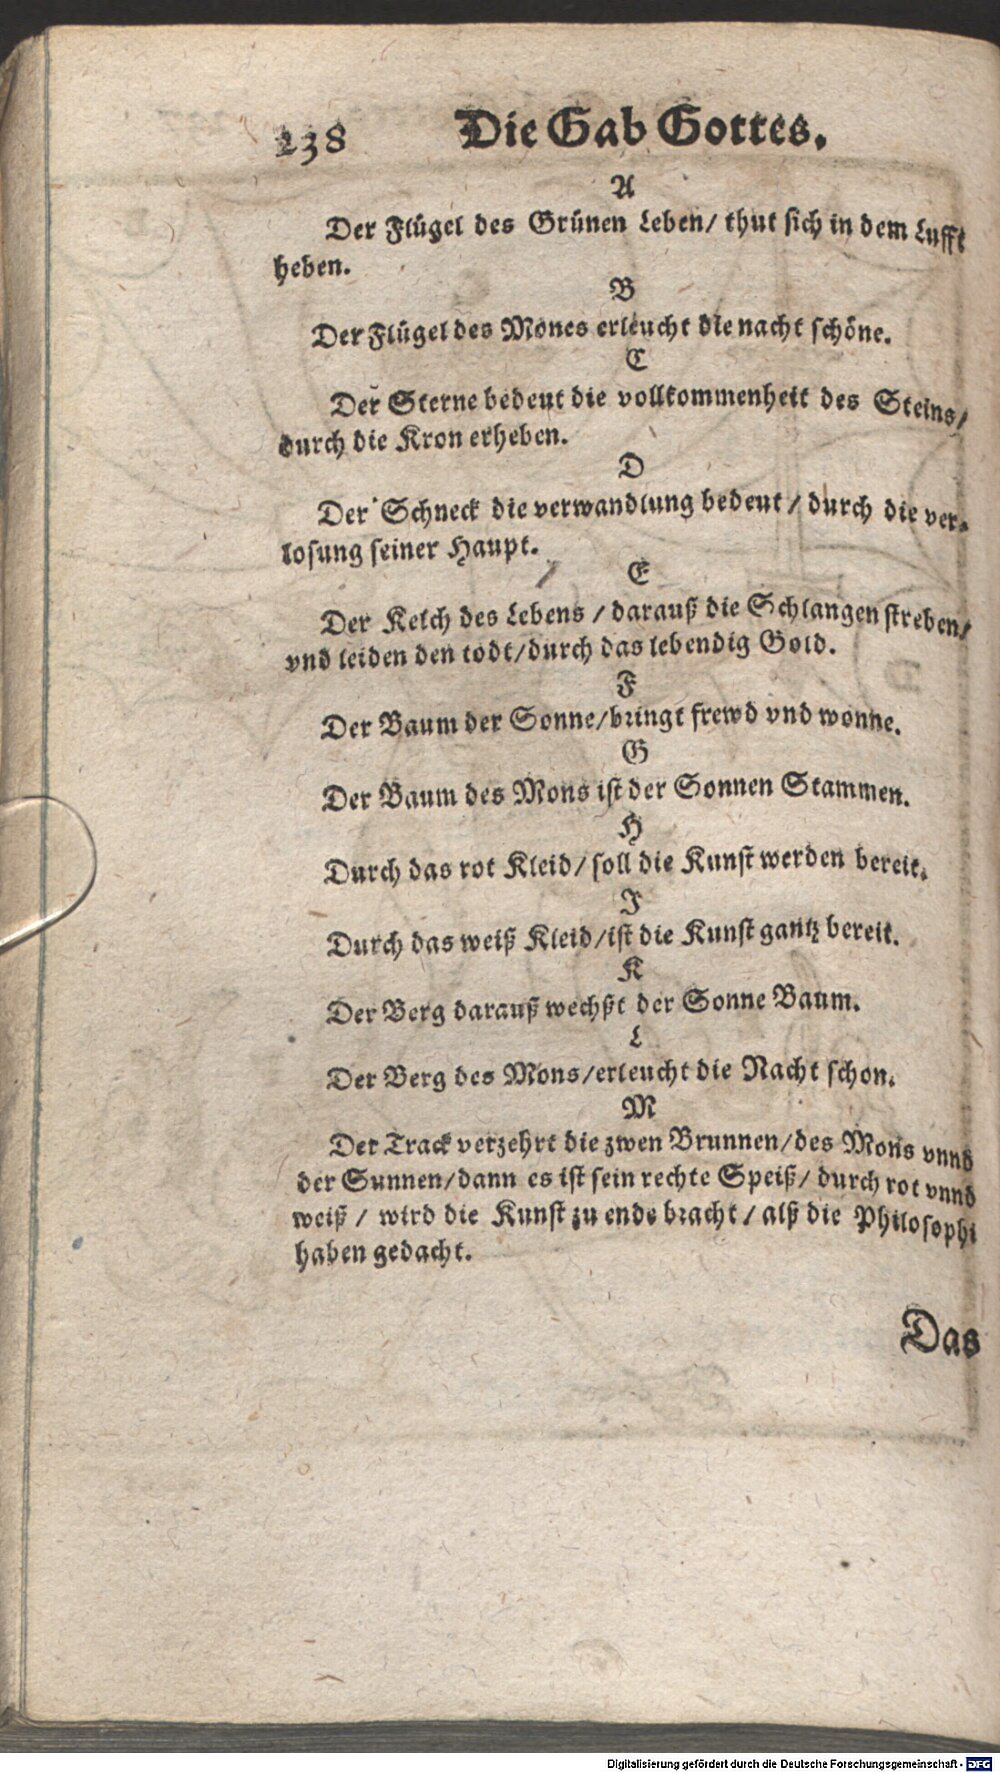 238 Die Gab Gottes.
A
Der Flügel des Grünen Leben/ thut sich in dem Lufft
heben.
B
Der Flügel des Mones erleucht die nacht schöne.
C
Der Sterne bedeut die vollkommenheit des Steins/
durch die Kron erheben.
D
Der Schneck die verwandlung bedeut / durch die ver-
losung seiner Haupt.
E
Der Kelch des Lebens / darauß die Schlangen streben/
vnd leiden den todt/durch das lebendig Gold.
F
Der Baum der Sonne/bringt frewd vnd wonne.
G
Der Baum des Mons ist der Sonnen Stammen.
H
Durch das rot Kleid/ soll die Kunst werden bereit.
I
Durch das weiß Kleid/ist die Kunst gantz bereit.
K
Der Berg darauß wechßt der Sonne Baum.
L
Der Berg des Mons/erleucht die Nacht schon.
M
Der Track verzehrt die zwen Brunnen/des Mons vnnd
der Sunnen/dann es ist sein rechte Speiß/ durch rot vnnd
weiß / wird die Kunst zu ende bracht / alß die Philosophi
haben gedacht.
Das
Digitalisierung gefördert durch die Deutsche Forschungsgemeinschaft - DFG